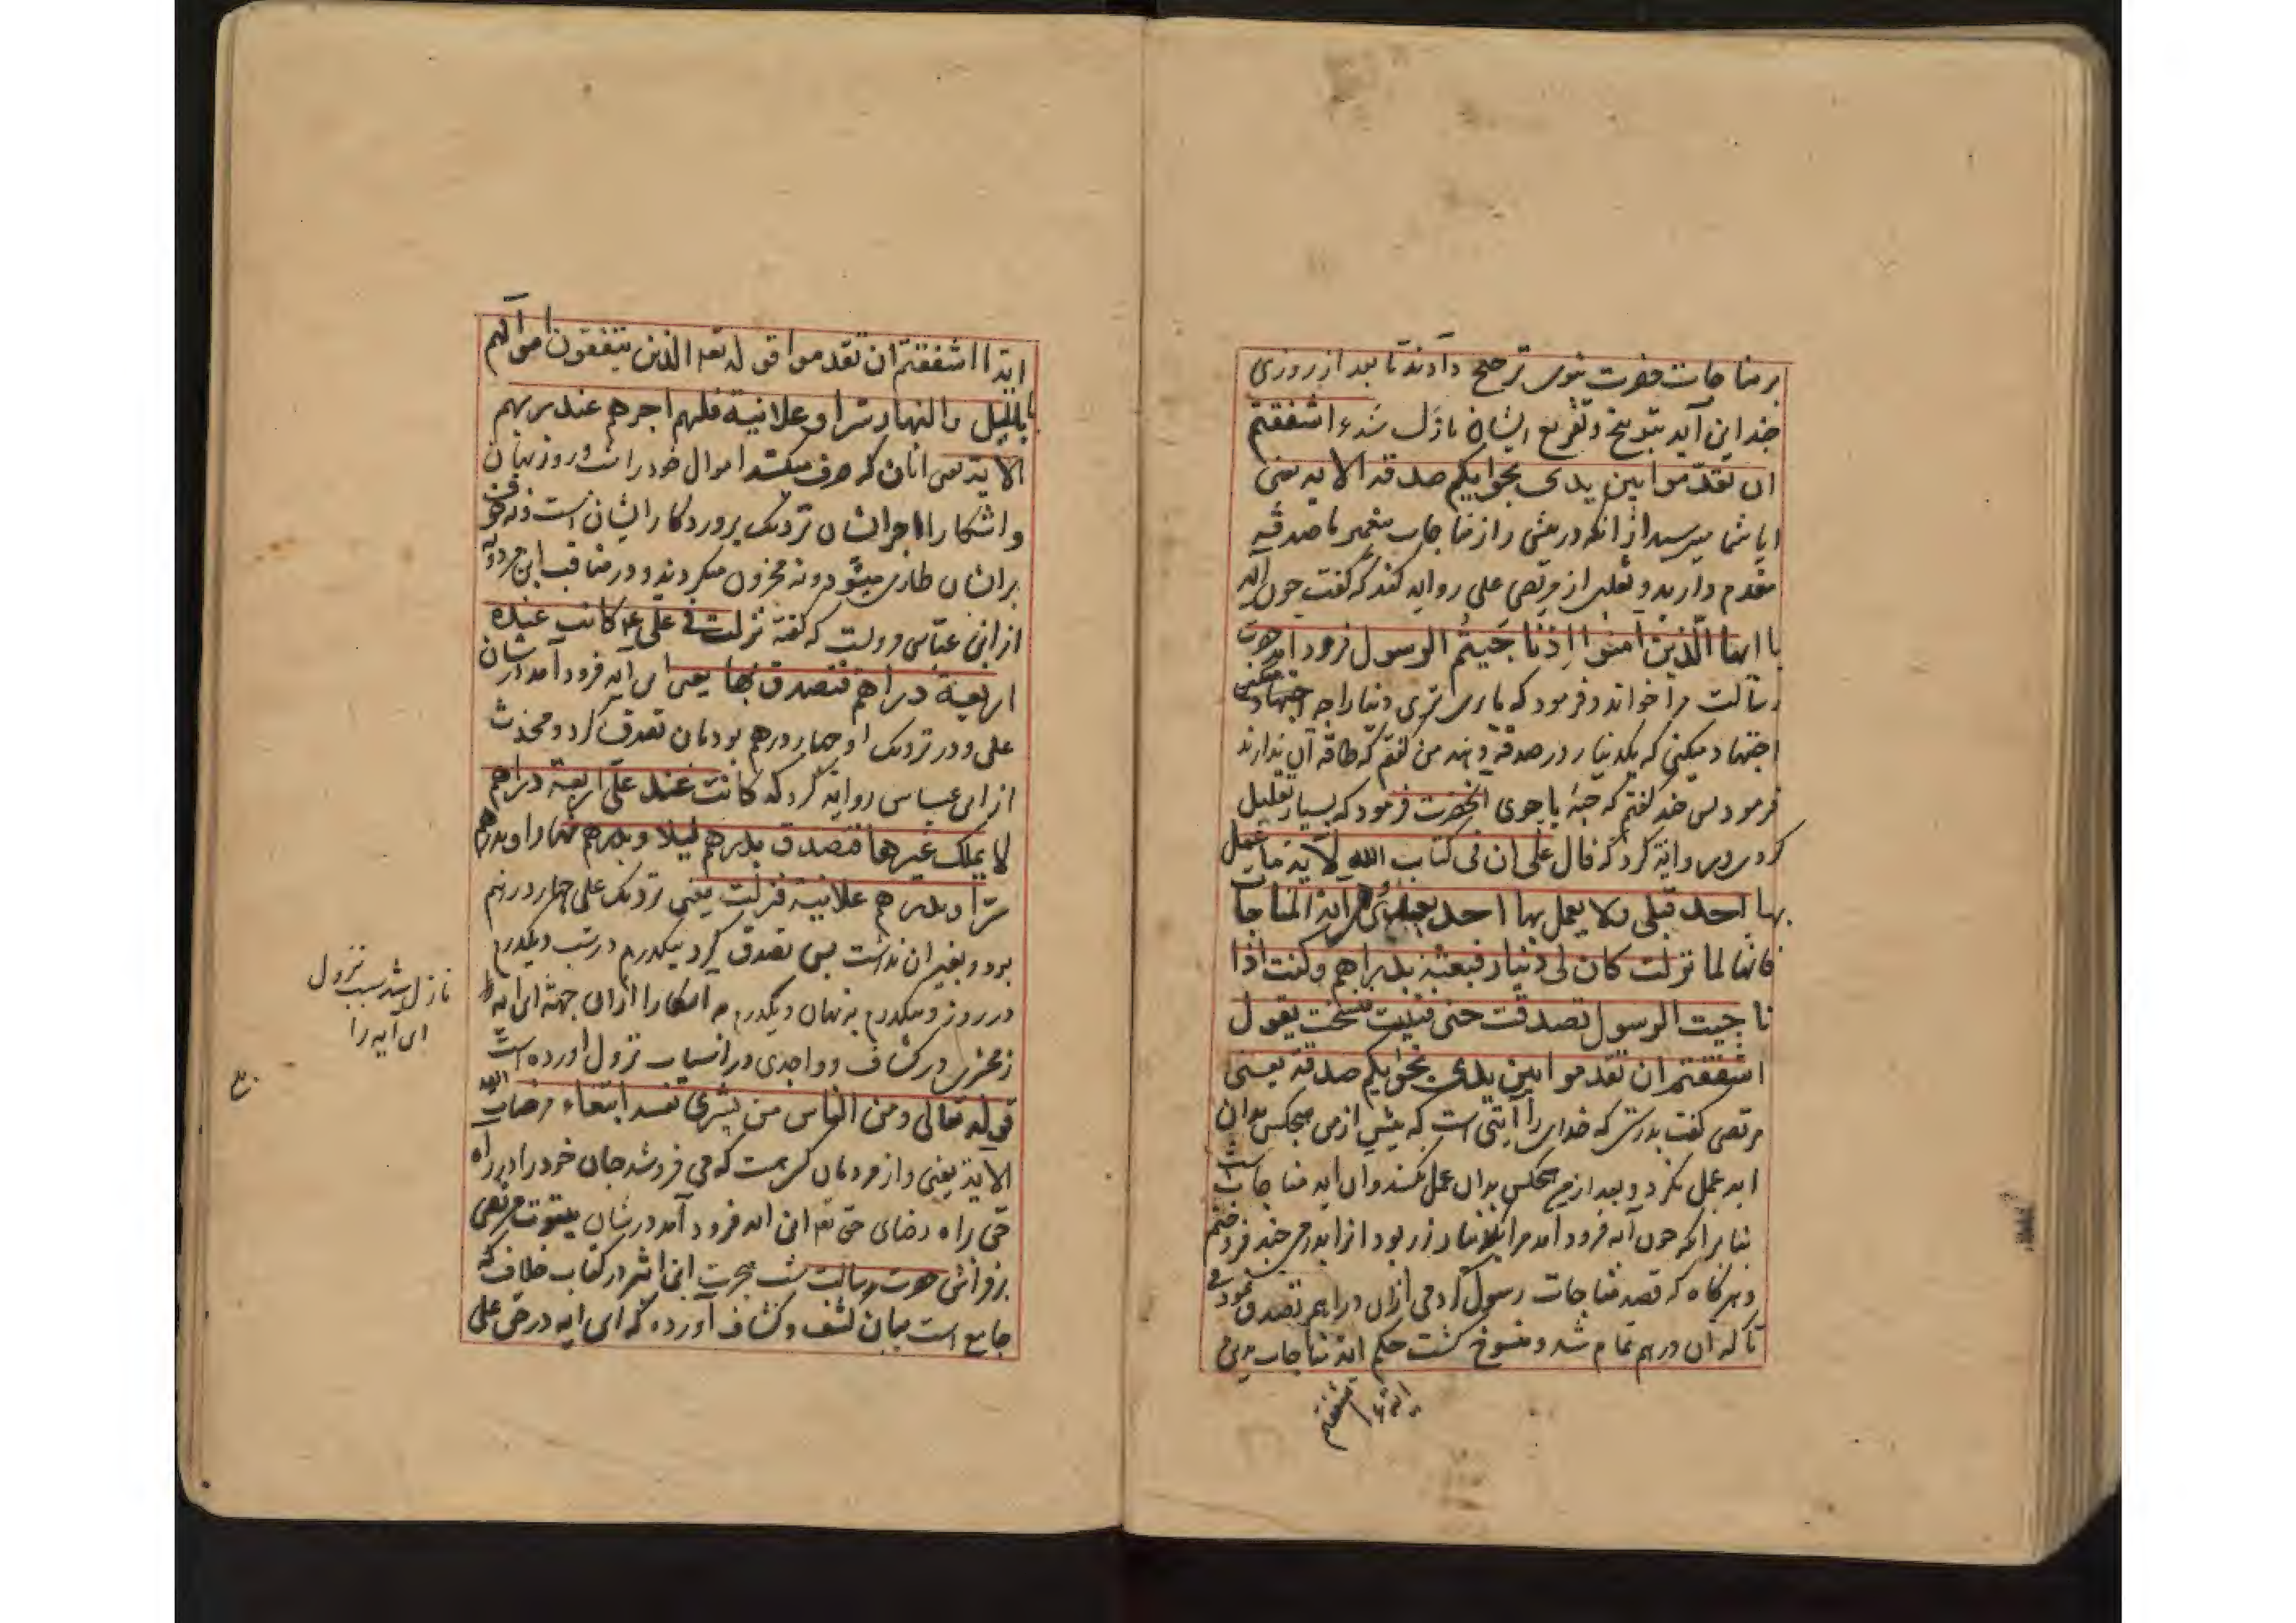 بر مناجات حضرت نبوی ترجیح دادند تا بعد از روزی
چند این آیه بتوبیخ و تقریع ایشان نازل شد ءاشفقتم
ان تقدموا بین یدی نجوایکم صدقة الایه یعنی
ایا شما میترسید از انکه درپیش راز مناجات پیغمبر ما صدقه
مقدم دارید و ثعلبی از مرتضی علی روایه کند که گفت چون آیه
یا ایها الذین آمنوا اذا ناجیتم الرسول فرود آمد حضرت
رسالت مرا خواند و فرمود که یا علی تری دنیارا چه اجتهاد میکنی
اجتهاد میکنی که یکدینار در صدقه دهند من گفتم که طاقة آن ندارند
فرمود پس چند گفتم که حبة یا جوی انحضرت فرمود که بسیار تقلیل
کردی و روایة کرد که قال علی ان فی کتاب الله لآیة ما عمل
بها احد قبلی ولا یعمل بها احد بعدی هی ایة المناجات
فانها لما نزلت کان لی دینار فبعته بدراهم و کنت اذا
ناجیت الرسول تصدقت حتی فنیت فنسخت بقول
اشفقتم ان تقدموا بین یدی نجوایکم صدقة یعنی
مرتضی گفت بدرستی که خدای را آیتی است که پیش از من هیچکس بدان
ایه عمل نکرد و بعد از من هیچکس بدان عمل نکند وان ایه مناجات است
بنا برانکه چون آیه فرود آمد مرا یکدینار زر بود انرا بدرمی چند فروختم
و هرگاه که قصد مناجات رسول کردمی ازان دراهم تصدق نمودمی
تا که ان درهم تمام شد و منسوخ گشت حکم ایة مناجات
اشفقتم
ایة ءاشفقتم ان تقدموا قوله تع الذین ینفقون اموالهم
باللیل والنهار سرا وعلانیة فلهم اجرهم عند ربهم
الایة یعنی انان که صرف میکنند اموال خود را شب و روز نهان
و اشکارا اجر ایشان نزدیک پروردکار ایشان است و نه خوف
بر ایشان طاری میشود و نه محزون میکردند و در مناقب ابن مردویه
از ابن عباس مرویست که گفته نزلت فی علی ع کانت عنده
اربعة دراهم فتصدق بها یعنی این آیه فرود آمد در شان
علی و در نزدیک او چهار درهم بود بان تصدق کرد و محدث
از ابن عباس روایة کرد که کانت عند علی اربعة دراهم
لا یملک غیرها فتصدق بدرهم لیلا و بدرهم نهارا و بدرهم
سرا و بدرهم علانیة فنزلت یعنی نزدیک علی چهار درهم
بود و بغیر ان نداشت پس تصدق کرد بیکدرم در شب و یکدرم
در روز و بیکدرم بنهان و یکدرم به اشکارا ازان جهة این ایه
زمخشری در کشاف و واحدی در اسباب نزول اورده است
قوله تعالی ومن الناس من یشری نفسه ابتغاء مرضات الله
الایة یعنی و از مردمان کسی هست که می فروشد جان خود را در راه
حق براه رضای حق تع این ایه فرود آمد در شان بیتوتت مرتضی
بر فراش حضرت رسالت شب هجرت ابن اثیر در کتاب خلاف که
جامع است میان کشف و کشاف آورده که این ایه در حق علی
نازل شد سبب نزول
این ایه را